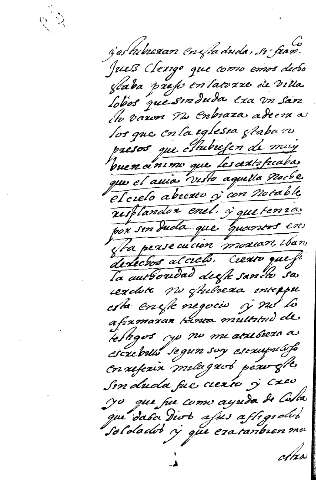 y estubieran en esta duda. Sr. franco
Juez Clerigo que como emos decho
estaba preso en la torre de villa
lobos que sin duda era un san
to varon No enbiara a decir a
los que en la iglesia estaban
presos que estubiesen de muy
buen animo que les certificaba
que el auia visto aquella Noche
el cielo abierto y con Notable
resplandor en el. y que tenia
por sin duda que quantos en
esta persecucion morian iban
derechos al cielo. Cierto que si
la authoridad deste santo sa
cerdote No estubiera interpu
esta en este negocio y no lo
afirmaran tanta multitud de
testigos yo no me atrebiera a
escrebillo segun soy escrupuloso
en referir milagros pero este
sin duda fue cierto y creo
yo que fue como ayuda de Costa
que daba Dios a sus afligidos
soldados y que era tanbien mu
estra